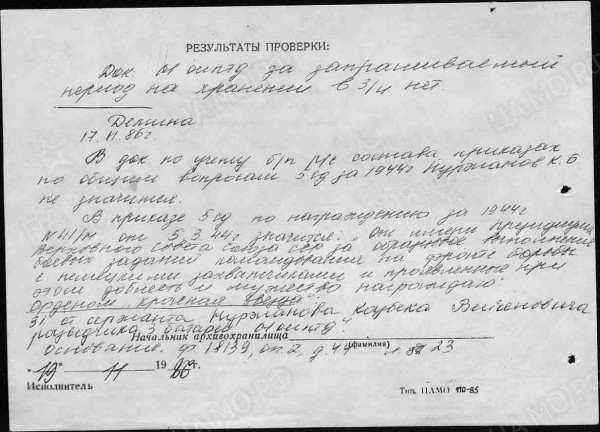 РЕЗУЛЬТАТЫ ПРОВЕРКИ:
Док. оиптд за запрашиваемый
период на хранении в 3/4 нет.
Демина
17.11.86г.
В док по учету б/п р/с состава, приказах
по общим вопросам 5 сд за 1944г Нуржанов К. Б
не значится.
В приказе 5 сд по награждению за 1944г
№ 41/н от 5.3.44г значится: "От имени президиума
Верховного Совета Союза ССР за образцовое выполнение
боевых заданий командования на фронте борьбы
с немецкими захватчиками и проявленные при
этом доблесть и мужество награждаю:
Орденом "Красная Звезда"
31 ст. сержанта Нуржанова
разведчика 3 батареи оиптд".
Начальник архивохранилища
(фамилия)
Основание: ф 1819, оп. 2, д. 49 л 23
"19" 11 1986г.
Исполнитель
Тип. ЦАМО 170-85
ЦАМО РФ